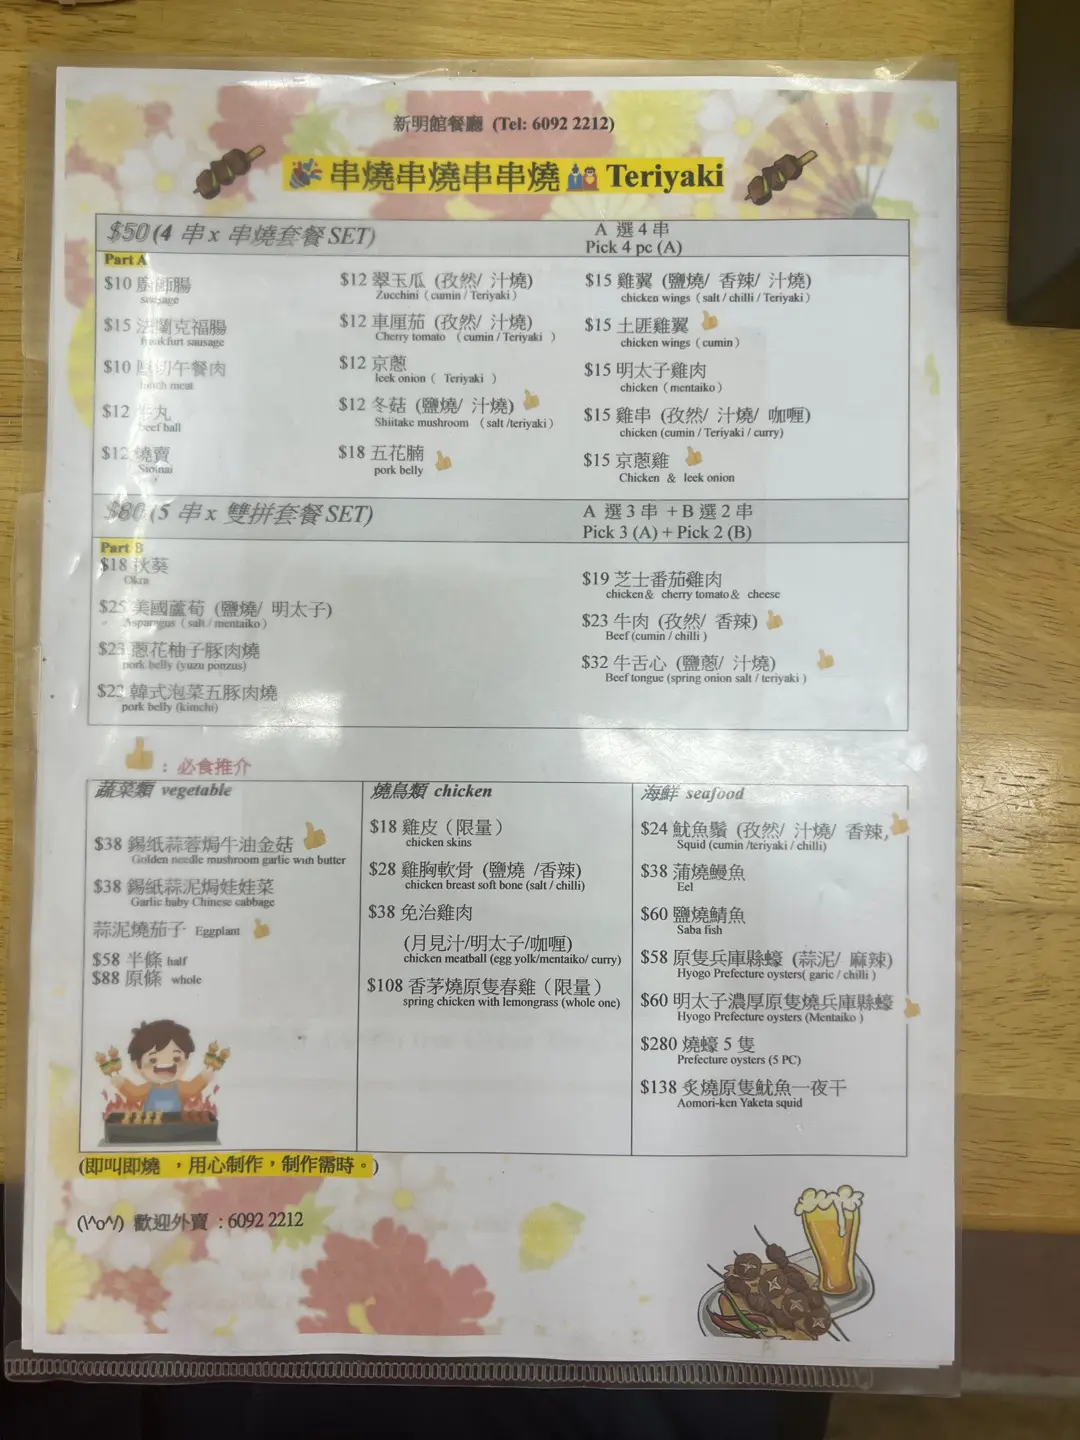 新明館餐廳 (Tel: 6092 2212)
串燒串燒串串燒 Teriyaki
$50 (4 串 x 串燒套餐 SET)
A 選 4 串
Pick 4 pc (A)
Part A
$10 廚師腸
sausage
$15 法蘭克福腸
frankfurt sausage
$10 厚切午餐肉
lunch meat
$12 牛丸
beef ball
$12 燒賣
$12 翠玉瓜 (孜然/ 汁燒)
Zucchini ( cumin / Teriyaki )
$12 車厘茄 (孜然/ 汁燒)
Cherry tomato ( cumin / Teriyaki )
$12 京蔥
leek onion ( Teriyaki )
$12 冬菇 (鹽燒/ 汁燒)
Shiitake mushroom ( salt /teriyaki )
$18 五花腩
pork belly
$15 雞翼 (鹽燒/ 香辣/ 汁燒)
chicken wings ( salt / chilli / Teriyaki )
$15 土匪雞翼
chicken wings ( cumin )
$15 明太子雞肉
chicken ( mentaiko )
$15 雞串 (孜然/ 汁燒/ 咖喱)
chicken (cumin / Teriyaki / curry)
$15 京蔥雞
Chicken & leek onion
$80 (5 串 x 雙拼套餐 SET)
A 選 3 串 + B 選 2 串
Pick 3 (A) + Pick 2 (B)
Part B
$18 秋葵
Okra
$25 美國蘆荀 (鹽燒/ 明太子)
Asparagus ( salt / mentaiko)
$23 蔥花柚子豚肉燒
pork belly (yuzu ponzus)
$22 韓式泡菜五豚肉燒
pork belly (kimchi)
$19 芝士番茄雞肉
chicken & cherry tomato & cheese
$23 牛肉 (孜然/ 香辣)
Beef (cumin / chilli )
$32 牛舌心 (鹽蔥/ 汁燒)
Beef tongue (spring onion salt / teriyaki )
：必食推介
蔬菜類 vegetable
$38 錫纸蒜蓉焗牛油金菇
Golden needle mushroom garlic with butter
$38 錫紙蒜泥焗娃娃菜
Garlic baby Chinese cabbage
蒜泥燒茄子 Eggplant
$58 半條 half
$88 原條 whole
燒鳥類 chicken
$18 雞皮（限量）
chicken skins
$28 雞胸軟骨 (鹽燒 /香辣)
chicken breast soft bone (salt / chilli)
$38 免治雞肉
(月見汁/明太子/咖喱)
chicken meatball (egg yolk/mentaiko/ curry)
$108 香茅燒原隻春雞（限量）
spring chicken with lemongrass (whole one)
海鮮 seafood
$24 魷魚鬚 (孜然/ 汁燒/ 香辣,
Squid (cumin /teriyaki / chilli)
$38 蒲燒鰻魚
Eel
$60 鹽燒鯖魚
Saba fish
$58 原隻兵庫縣蠔 (蒜泥/ 麻辣)
Hyogo Prefecture oysters( garic / chilli )
$60 明太子濃厚原隻燒兵庫縣蠔
Hyogo Prefecture oysters (Mentaiko )
$280 燒蠔 5 隻
Prefecture oysters (5 PC)
$138 炙燒原隻魷魚一夜干
Aomori-ken Yaketa squid
(即叫即燒 ，用心制作，制作需時。)
(\^o^/) 歡迎外賣 : 6092 2212